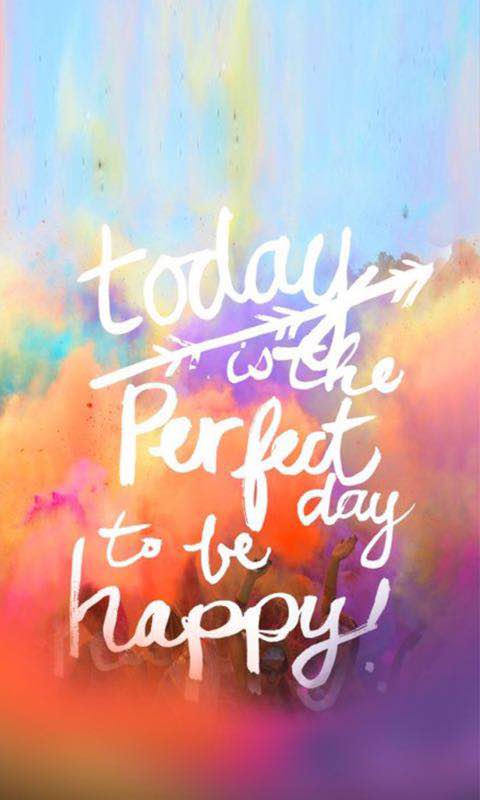 today
is the
Perfect
day
to be
happy!